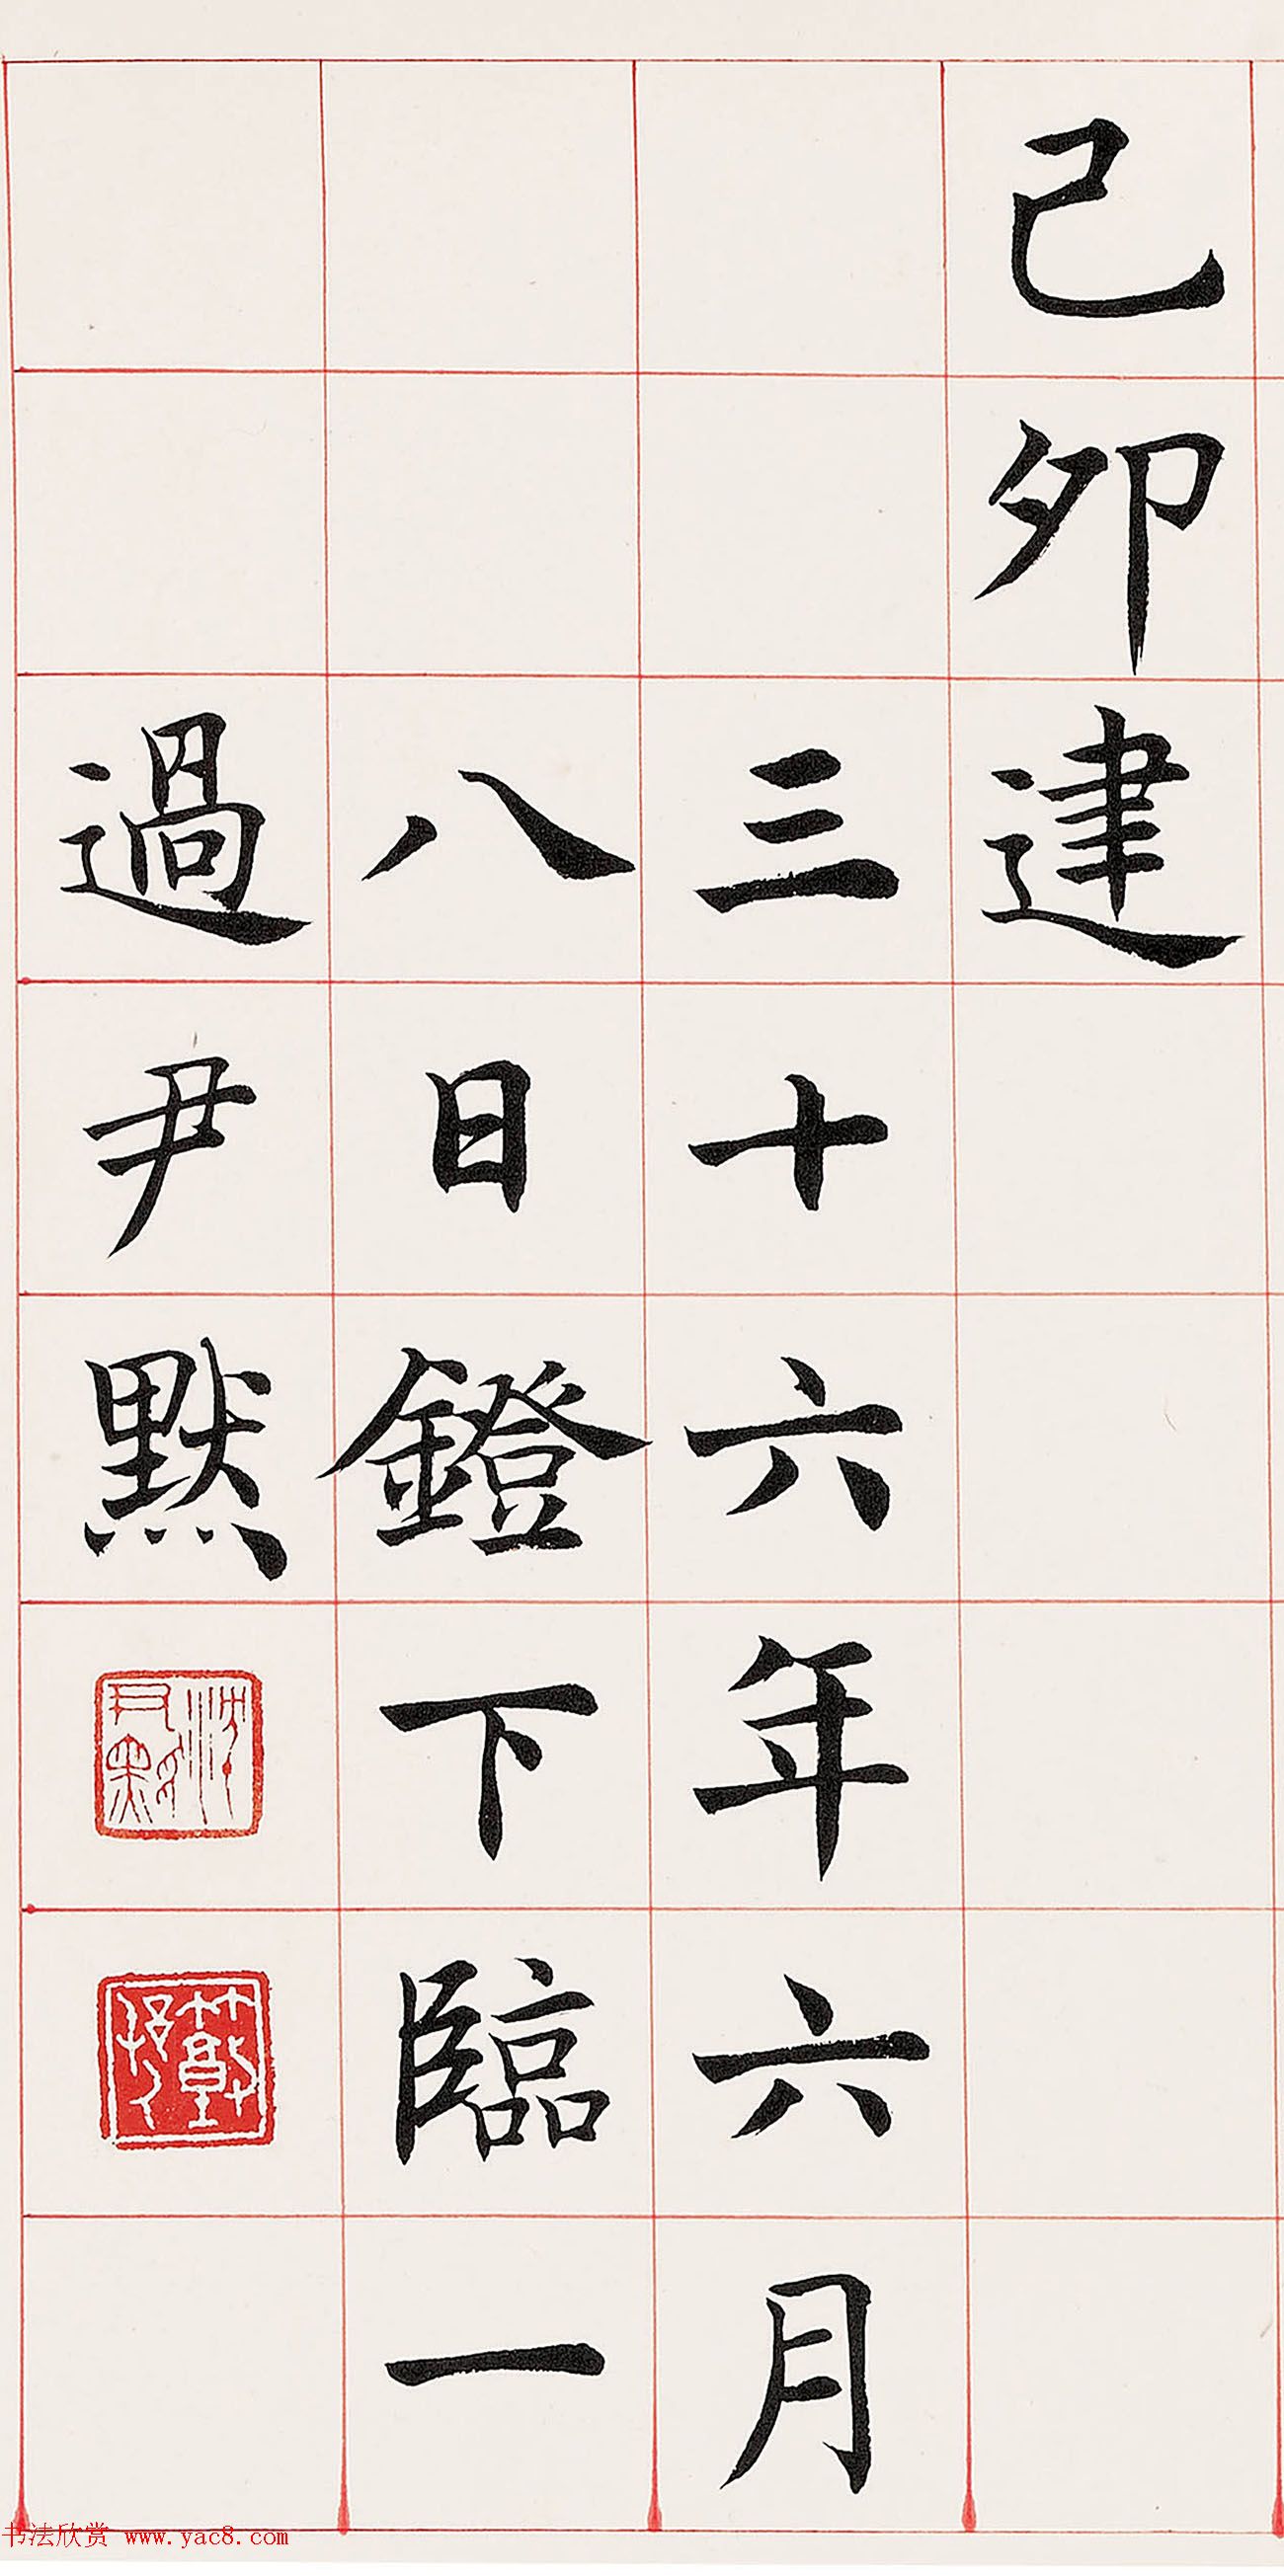 己卯建
三十六年六月
八日鐙下臨一
過尹默
沈尹默
书法欣赏 www.yac8.com